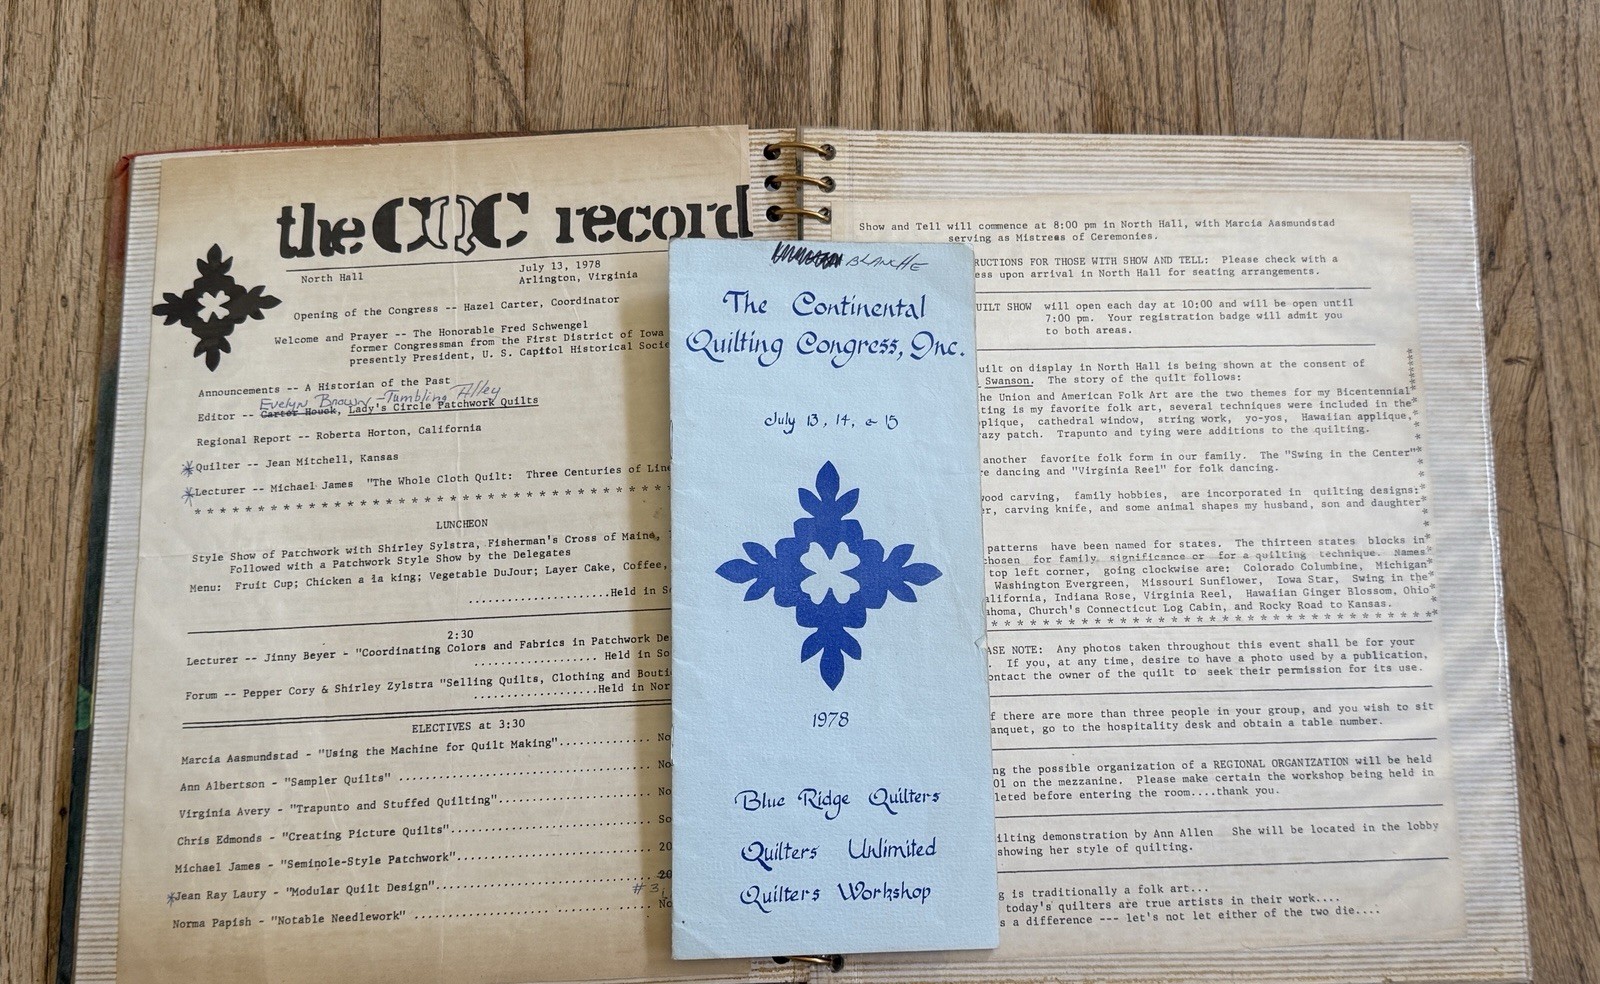 the CQC record
North Hall
July 13, 1978
Arlington, Virginia
Opening of the Congress -- Hazel Carter, Coordinator
Welcome and Prayer -- The Honorable Fred Schwengel
former Congressman from the First District of Iowa
presently President, U. S. Capitol Historical Socie
Announcements -- A Historian of the Past
Evelyn Brown - Tumbling Alley
Editor -- Carter Houck, Lady's Circle Patchwork Quilts
Regional Report -- Roberta Horton, California
*Quilter -- Jean Mitchell, Kansas
*Lecturer -- Michael James "The Whole Cloth Quilt: Three Centuries of Line
* * * * * * * * * * * * * * * * * * * * * * * * * * * * * * * * * * * * * * *
LUNCHEON
Style Show of Patchwork with Shirley Sylstra, Fisherman's Cross of Maine,
Followed with a Patchwork Style Show by the Delegates
Menu: Fruit Cup; Chicken a la king; Vegetable DuJour; Layer Cake, Coffee,
......................Held in So
2:30
Lecturer -- Jinny Beyer - "Coordinating Colors and Fabrics in Patchwork De
................... Held in So
Forum -- Pepper Cory & Shirley Zylstra "Selling Quilts, Clothing and Bouti
...................Held in Nor
ELECTIVES at 3:30
Marcia Aasmundstad - "Using the Machine for Quilt Making".............. No
Ann Albertson - "Sampler Quilts" ....................................... No
Virginia Avery - "Trapunto and Stuffed Quilting"........................ No
Chris Edmonds - "Creating Picture Quilts"............................... So
Michael James - "Seminole-Style Patchwork".............................. 20
*Jean Ray Laury - "Modular Quilt Design"................................ 20
#3
Norma Papish - "Notable Needlework" .................................... No
BLANCHE
The Continental
Quilting Congress, Inc.
July 13, 14, & 15
1978
Blue Ridge Quilters
Quilters Unlimited
Quilters Workshop
Show and Tell will commence at 8:00 pm in North Hall, with Marcia Aasmundstad
serving as Mistress of Ceremonies.
RUCTIONS FOR THOSE WITH SHOW AND TELL: Please check with a
ess upon arrival in North Hall for seating arrangements.
UILT SHOW will open each day at 10:00 and will be open until
7:00 pm. Your registration badge will admit you
to both areas.
uilt on display in North Hall is being shown at the consent of
Swanson. The story of the quilt follows:
he Union and American Folk Art are the two themes for my Bicentennial
ting is my favorite folk art, several techniques were included in the
plique, cathedral window, string work, yo-yos, Hawaiian applique,
razy patch. Trapunto and tying were additions to the quilting.
another favorite folk form in our family. The "Swing in the Center"
re dancing and "Virginia Reel" for folk dancing.
wood carving, family hobbies, are incorporated in quilting designs:
er, carving knife, and some animal shapes my husband, son and daughter
patterns have been named for states. The thirteen states blocks in
chosen for family significance or for a quilting technique. Names
top left corner, going clockwise are: Colorado Columbine, Michigan
Washington Evergreen, Missouri Sunflower, Iowa Star, Swing in the
alifornia, Indiana Rose, Virginia Reel, Hawaiian Ginger Blossom, Ohio
ahoma, Church's Connecticut Log Cabin, and Rocky Road to Kansas.
* * * * * * * * * * * * * * * * * * * * * * * * * * * * * * * * * * *
ASE NOTE: Any photos taken throughout this event shall be for your
. If you, at any time, desire to have a photo used by a publication,
ontact the owner of the quilt to seek their permission for its use.
f there are more than three people in your group, and you wish to sit
anquet, go to the hospitality desk and obtain a table number.
ng the possible organization of a REGIONAL ORGANIZATION will be held
01 on the mezzanine. Please make certain the workshop being held in
leted before entering the room....thank you.
ilting demonstration by Ann Allen She will be located in the lobby
showing her style of quilting.
g is traditionally a folk art...
today's quilters are true artists in their work....
s a difference --- let's not let either of the two die....